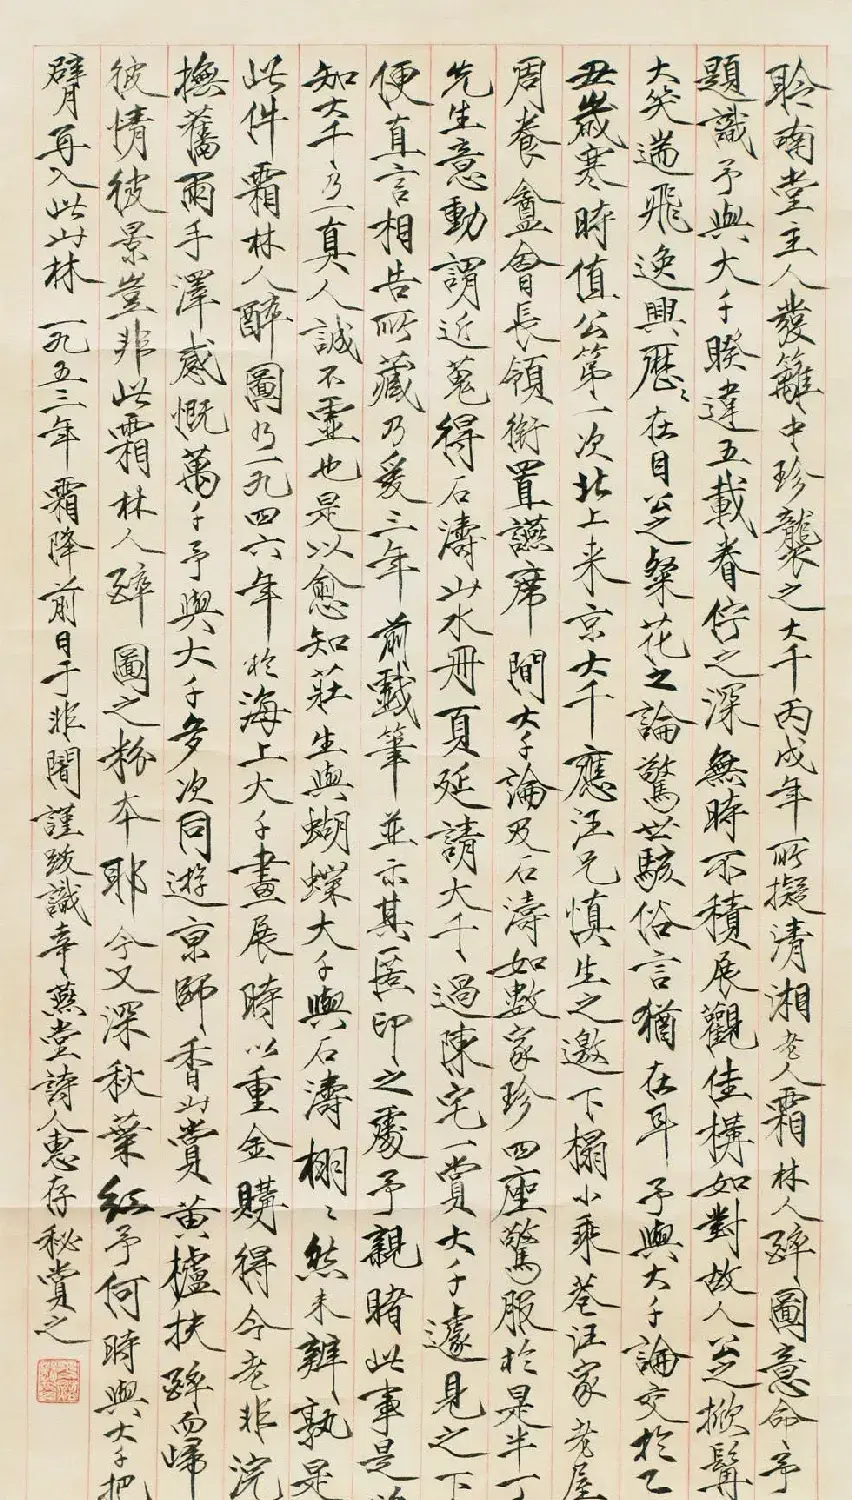 聆雨堂主人發籬中珍襲之大千丙戌年所擬清湘老人霜林人醉圖意命予
題識予與大千睽違五載眷佇之深無時不積展觀佳構如對故人公之掀髯
大笑遄飛逸興歷歷在目公之粲花之論驚世駭俗言猶在耳予與大千論交於乙
丑歲寒時值公第一次北上来京大千應汪兄慎生之邀下榻小乘巷汪家老屋
周養盦會長領銜置讌席間大千論及石濤如數家珍四座驚服於是半丁
先生意動謂近蒐得石濤山水册頁延請大千過陳宅一賞大千遽見之下
便直言相告所藏乃爰三年前戲筆並示其匿印之處予親睹此事是
知大千乃一真人誠不虛也是以愈知莊生與蝴蝶大千與石濤栩栩然未辨孰是
此件霜林人醉圖乃一九四六年於海上大千畫展時以重金購得今老非浣
撫舊雨手澤感慨萬千予與大千多次同遊京師香山賞黄櫨扶醉而歸
彼情彼景豈非此霜林人醉圖之粉本耶今又深秋葉紅予何時與大千把
臂再入此山林一九五三年霜降前日于非闇謹跋識幸燕堂詩人惠存秘賞之